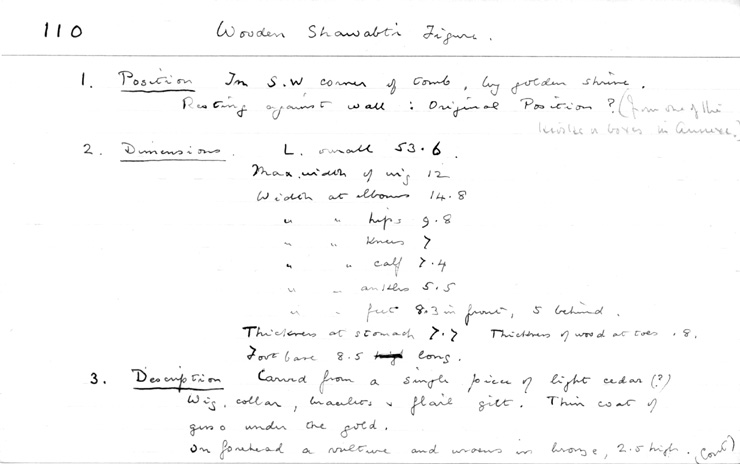 110 Wooden Shawabti Figure.
1. Position In S.W corner of tomb, by golden shrine.
Resting against wall : Original Position ? (from one of the
kiosks or boxes in Annexe.)
2. Dimensions. L. overall 53.6.
Max. width of wig 12
Width at elbows 14.8
" " hips 9.8
" " knees 7
" " calf 7.4
" " ankles 5.5
" " feet 8.3 in front, 5 behind.
Thickness at stomach 7.7 Thickness of wood at toes .8.
Foot base 8.5 long.
3. Description Carved from a single piece of light cedar (?)
Wig, collar, bracelets & flail gilt. Thin coat of
gesso under the gold.
On forehead a vulture and uraeus in bronze, 2.5 high. (cont)